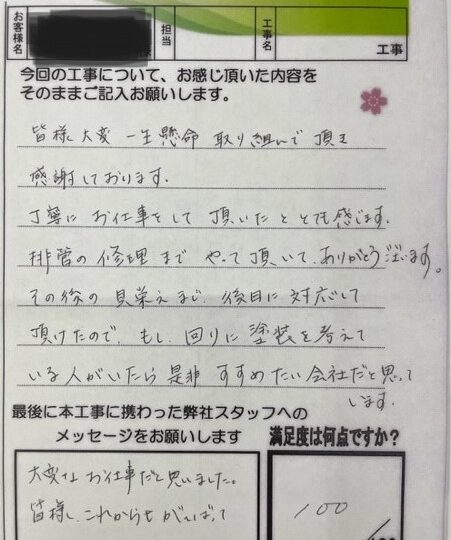 お客様名
様
担当
工事名
工事
今回の工事について、お感じ頂いた内容を
そのままご記入お願いします。
皆様大変 一生懸命 取り組んで 頂き
感謝しております。
丁寧に お仕事をして 頂いた と とても感じます。
排管の修理まで やって頂いて、ありがとう ございます。
その後の 見栄えまで、後日に 対応して
頂けたので、もし、回りに 塗装を考えて
いる人がいたら 是非 すすめたい会社だと思って
します。
最後に本工事に携わった弊社スタッフへの
メッセージをお願いします
満足度は何点ですか?
大変な お仕事だと思いました。
皆様、これからも がんばって
100